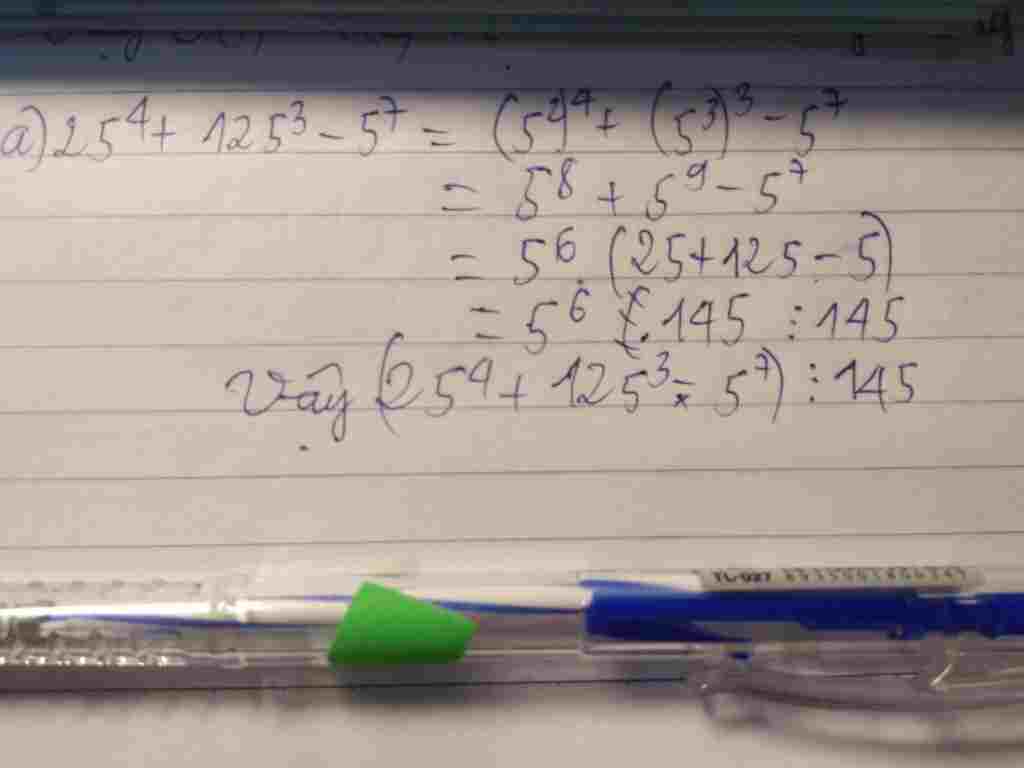 a) 25⁴ + 125³ - 5⁷ = (5²)⁴ + (5³)³ - 5⁷
= 5⁸ + 5⁹ - 5⁷
= 5⁶ . (25 + 125 - 5)
= 5⁶ . 145 ⋮ 145
Vậy (25⁴ + 125³ - 5⁷) ⋮ 145
TL-027